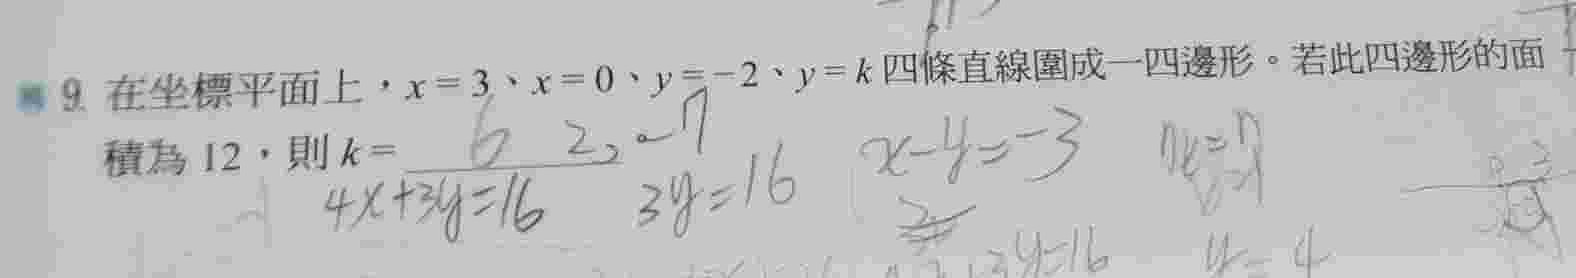 9. 在坐標平面上，x＝3、x＝0、y＝－2、y＝k 四條直線圍成一四邊形。若此四邊形的面
積為 12，則 k＝ 6 2,
4x+3y=16 3y=16 x-y=-3
3y=16 y=4